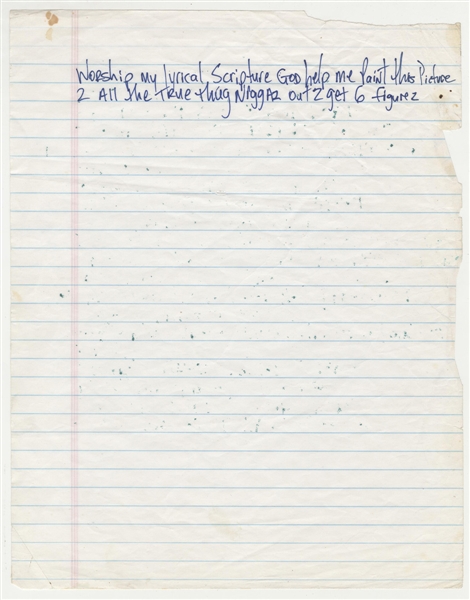 Worship my lyrical Scripture God help me Paint this Picture
2 All the True thug Niggaz out 2 get 6 figurez